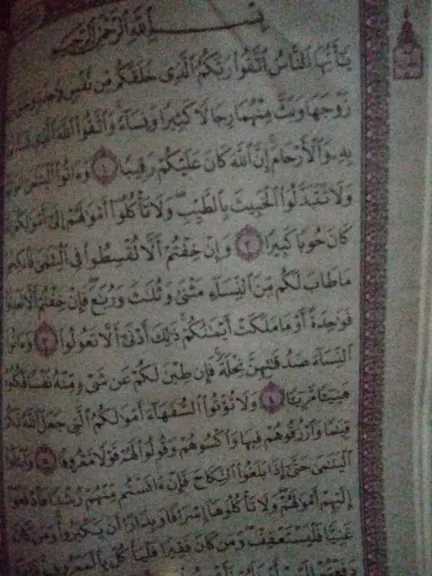 بِسْمِ ٱللَّهِ ٱلرَّحْمَٰنِ ٱلرَّحِيمِ
يَٰٓأَيُّهَا ٱلنَّاسُ ٱتَّقُوا۟ رَبَّكُمُ ٱلَّذِى خَلَقَكُم مِّن نَّفْسٍ وَٰحِدَةٍ
زَوْجَهَا وَبَثَّ مِنْهُمَا رِجَالًا كَثِيرًا وَنِسَآءً وَٱتَّقُوا۟ ٱللَّهَ ٱلَّذِى
بِهِۦ وَٱلْأَرْحَامَ إِنَّ ٱللَّهَ كَانَ عَلَيْكُمْ رَقِيبًا ١ وَءَاتُوا۟ ٱلْيَتَٰمَىٰٓ
وَلَا تَتَبَدَّلُوا۟ ٱلْخَبِيثَ بِٱلطَّيِّبِ وَلَا تَأْكُلُوٓا۟ أَمْوَٰلَهُمْ إِلَىٰٓ أَمْوَٰلِكُمْ
كَانَ حُوبًا كَبِيرًا ٢ وَإِنْ خِفْتُمْ أَلَّا تُقْسِطُوا۟ فِى ٱلْيَتَٰمَىٰ
مَا طَابَ لَكُم مِّنَ ٱلنِّسَآءِ مَثْنَىٰ وَثُلَٰثَ وَرُبَٰعَ فَإِنْ خِفْتُمْ أَلَّا
فَوَٰحِدَةً أَوْ مَا مَلَكَتْ أَيْمَٰنُكُمْ ذَٰلِكَ أَدْنَىٰٓ أَلَّا تَعُولُوا۟ ٣ وَءَاتُوا۟
ٱلنِّسَآءَ صَدُقَٰتِهِنَّ نِحْلَةً فَإِن طِبْنَ لَكُمْ عَن شَىْءٍ مِّنْهُ نَفْسًا فَكُلُوهُ
هَنِيٓـًٔا مَّرِيٓـًٔا ٤ وَلَا تُؤْتُوا۟ ٱلسُّفَهَآءَ أَمْوَٰلَكُمُ ٱلَّتِى جَعَلَ ٱللَّهُ لَكُمْ
قِيَٰمًا وَٱرْزُقُوهُمْ فِيهَا وَٱكْسُوهُمْ وَقُولُوا۟ لَهُمْ قَوْلًا مَّعْرُوفًا ٥ وَٱبْتَلُوا۟
ٱلْيَتَٰمَىٰ حَتَّىٰٓ إِذَا بَلَغُوا۟ ٱلنِّكَاحَ فَإِنْ ءَانَسْتُم مِّنْهُمْ رُشْدًا فَٱدْفَعُوٓا۟
إِلَيْهِمْ أَمْوَٰلَهُمْ وَلَا تَأْكُلُوهَآ إِسْرَافًا وَبِدَارًا أَن يَكْبَرُوا۟ وَمَن كَانَ
غَنِيًّا فَلْيَسْتَعْفِفْ وَمَن كَانَ فَقِيرًا فَلْيَأْكُلْ بِٱلْمَعْرُوفِ
دَفَعْتُمْ إِلَيْهِمْ أَمْوَٰلَهُمْ